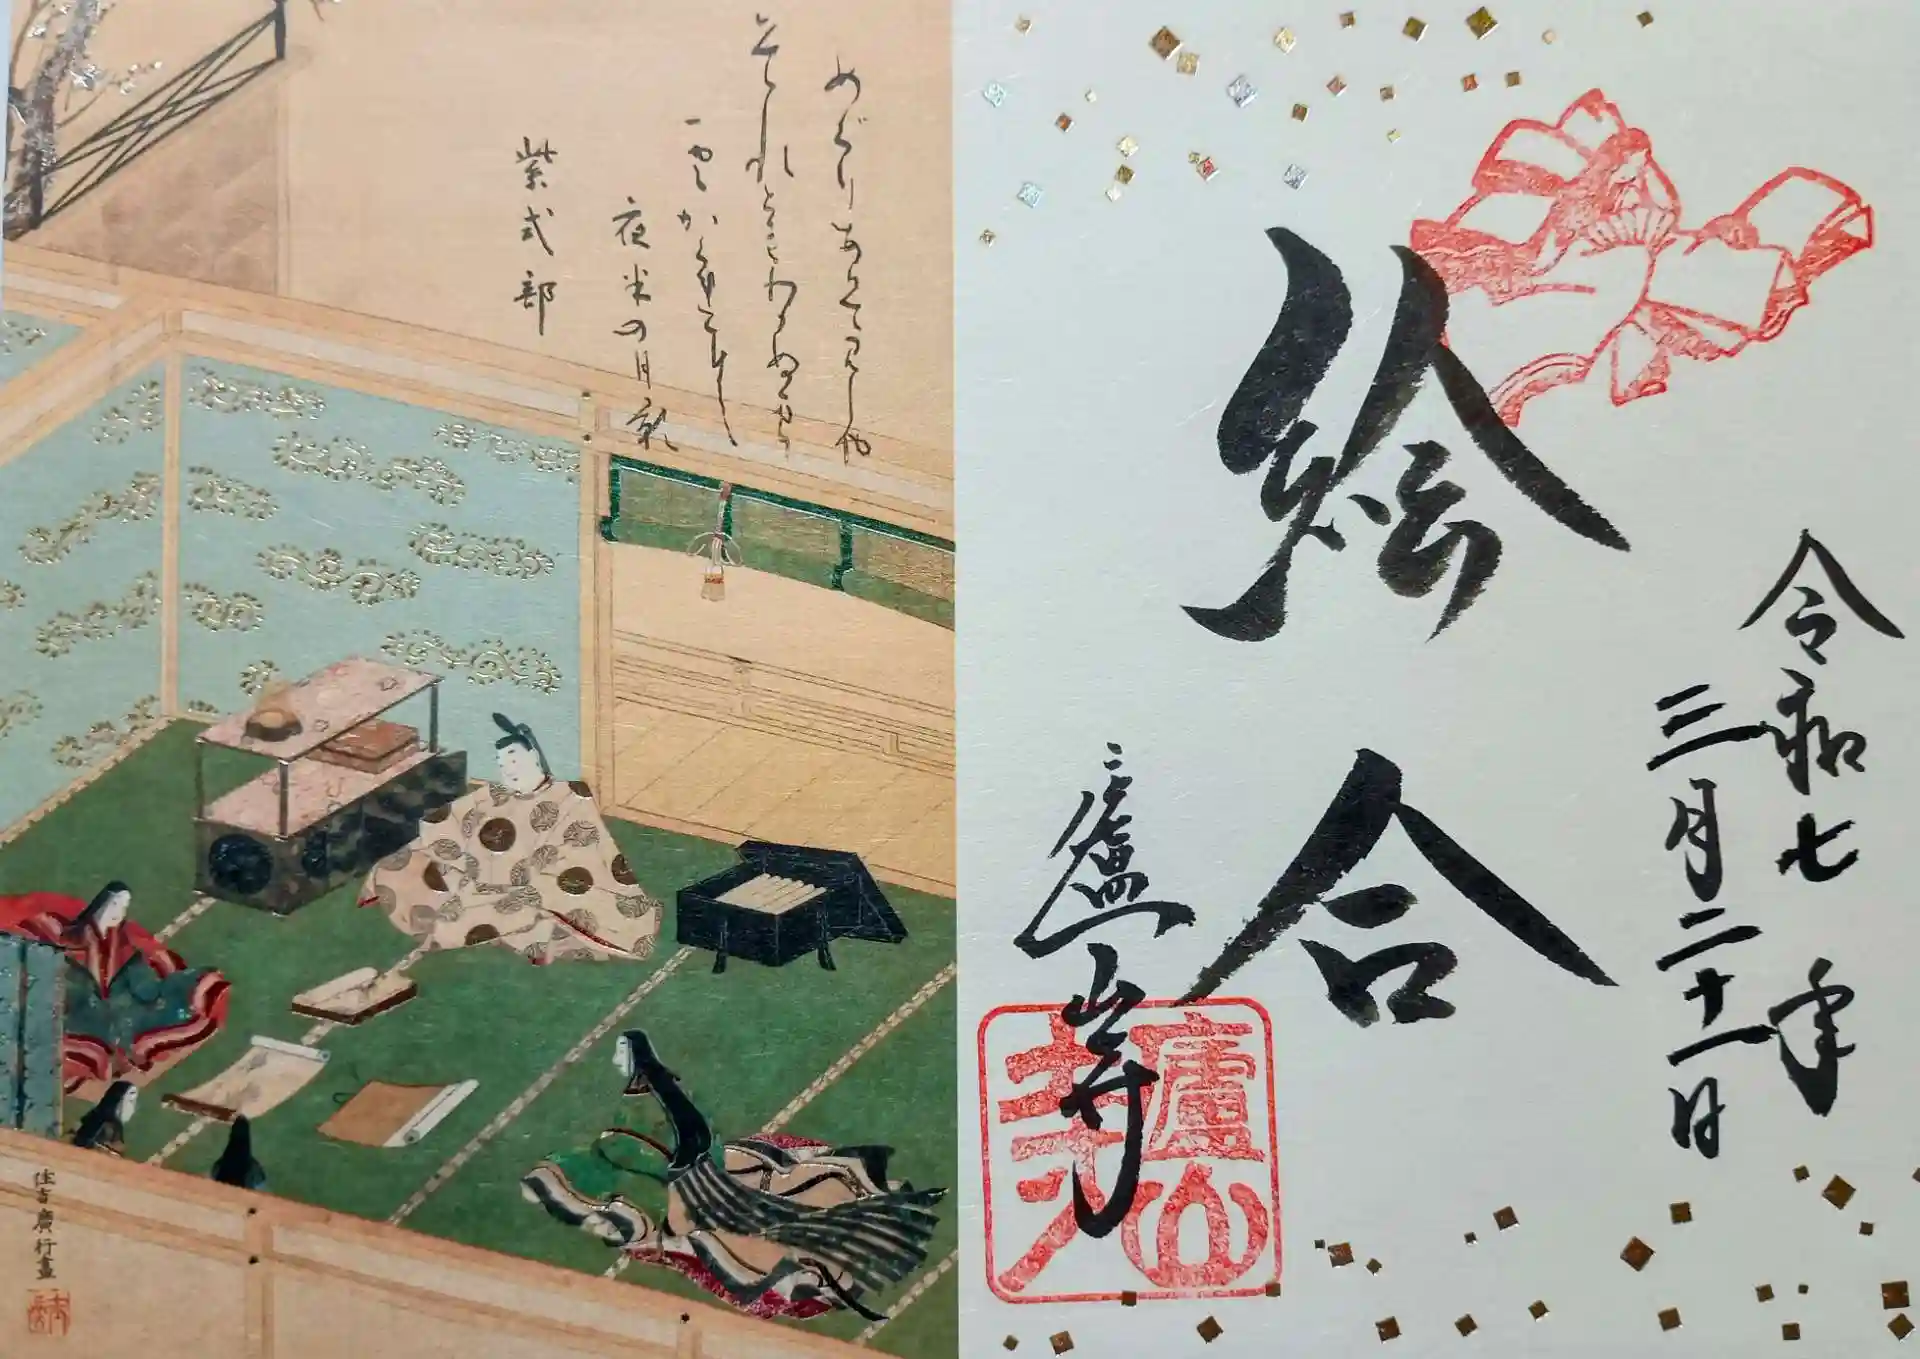 令和七年
三月二十一日
絵合
廬山寺
廬山
めぐりあひて見しや
それともわかぬまに
雲かくれにし
夜半の月影
紫式部
住吉廣行畫